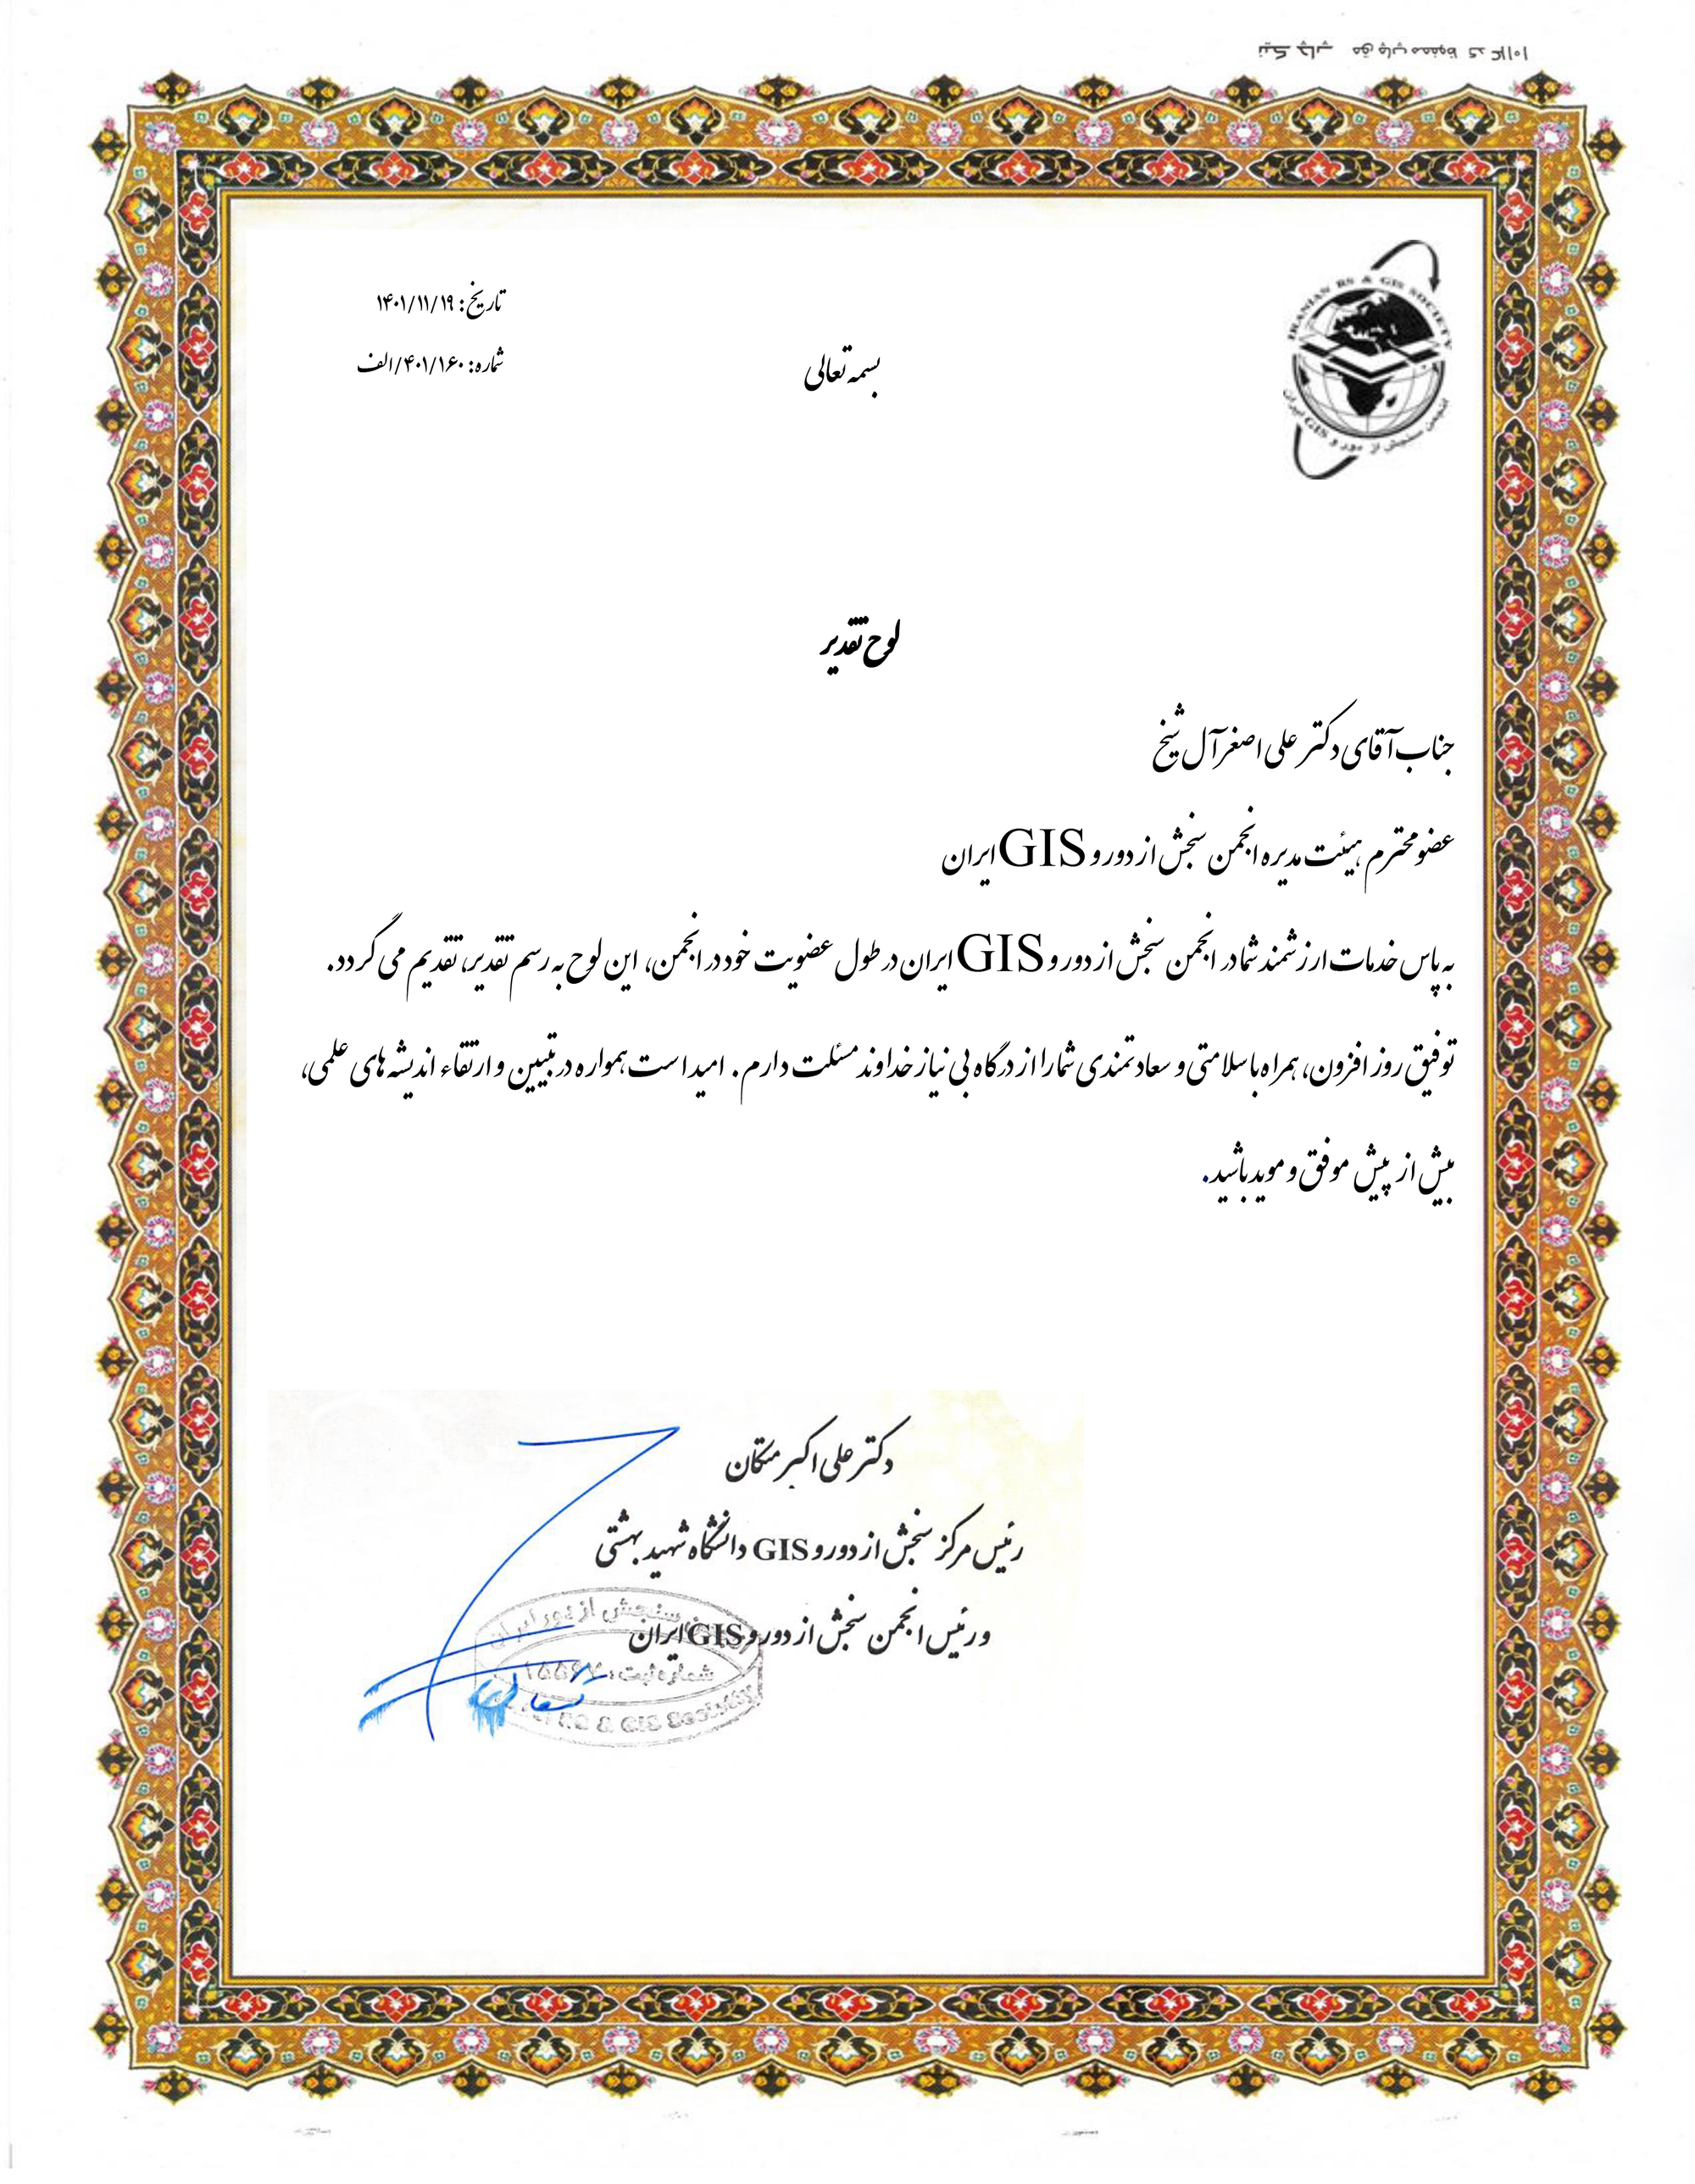 نیک چاپ حق چاپ محفوظ کد ۱۰۱۱۴
IRANIAN RS & GIS SOCIETY
انجمن سنجش از دور و GIS ایران
تاریخ: ۱۴۰۱/۱۱/۱۹
شماره: ۴۰۱/۱۶۰/الف
بسمه تعالی
لوح تقدیر
جناب آقای دکتر علی اصغر آل شیخ
عضو محترم هیئت مدیره انجمن سنجش از دور و GIS ایران
به پاس خدمات ارزشمند شما در انجمن سنجش از دور و GIS ایران در طول عضویت خود در انجمن، این لوح به رسم تقدیر، تقدیم می گردد.
توفیق روز افزون، همراه با سلامتی و سعادتمندی شما را از درگاه بی نیاز خداوند مسئلت دارم. امید است همواره در تبیین و ارتقاء اندیشه های علمی،
بیش از پیش موفق و موید باشید.
دکتر علی اکبر متکان
رئیس مرکز سنجش از دور و GIS دانشگاه شهید بهشتی
و رئیس انجمن سنجش از دور و GIS ایران
سنجش از دور ایران
شماره ثبت:
RS & GIS Society